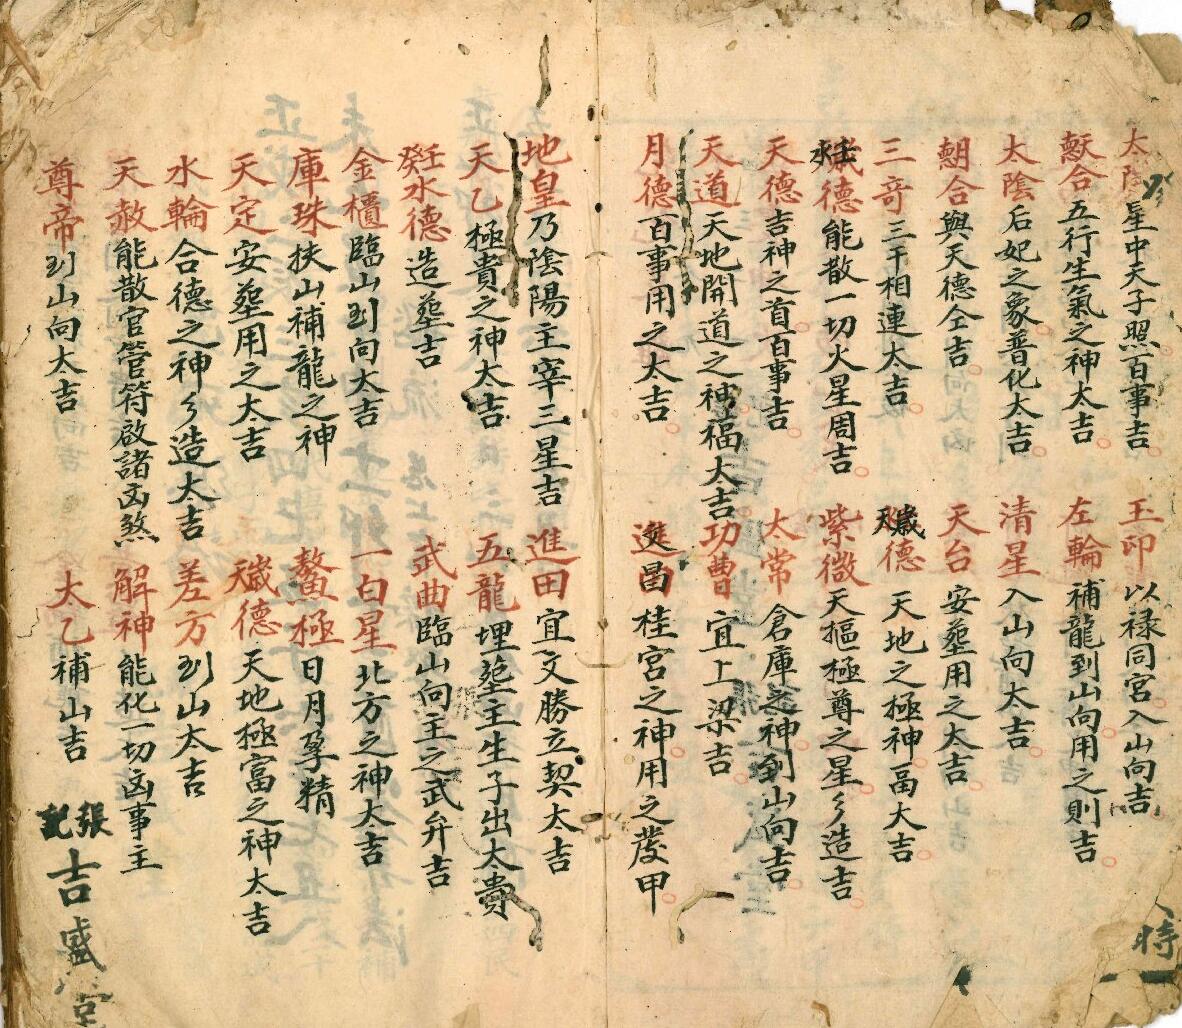 太陰星中天子照百事吉 玉印以禄同宮入山向吉
合五行生氣之神大吉 左輪補龍到山向用之則吉
太陰后妃之象普化大吉 清星入山向大吉
朝合與天德仝吉 天台安塟用之大吉
三竒三干相連太吉 德天地之極神畐大吉
德能散一切火星周吉 紫微天摳極尊之星彡造吉
天德吉神之首百事吉 太常倉庫之神到山向吉
天道天地開道之神福太吉 功曹宜上梁吉
月德百事用之太吉 昌桂宮之神用之發甲
地皇乃陰陽主宰三星吉 進田宜文勝立契太吉
天乙極貴之神太吉 五龍埋塟主生子出太貴
壬癸水德造塟吉 武曲臨山向主之武弁吉
金櫃臨山到向大吉 一白星北方之神大吉
庫珠扶山補龍之神 鰲極日月孕精
天定安塟用之太吉 德天地極富之神太吉
水輪合德之神彡造太吉 差方到山太吉
天赦能散官管符啟諸凶煞 解神能化一切凶事主
尊帝到山向大吉 太乙補山吉
張記
吉盛堂
時